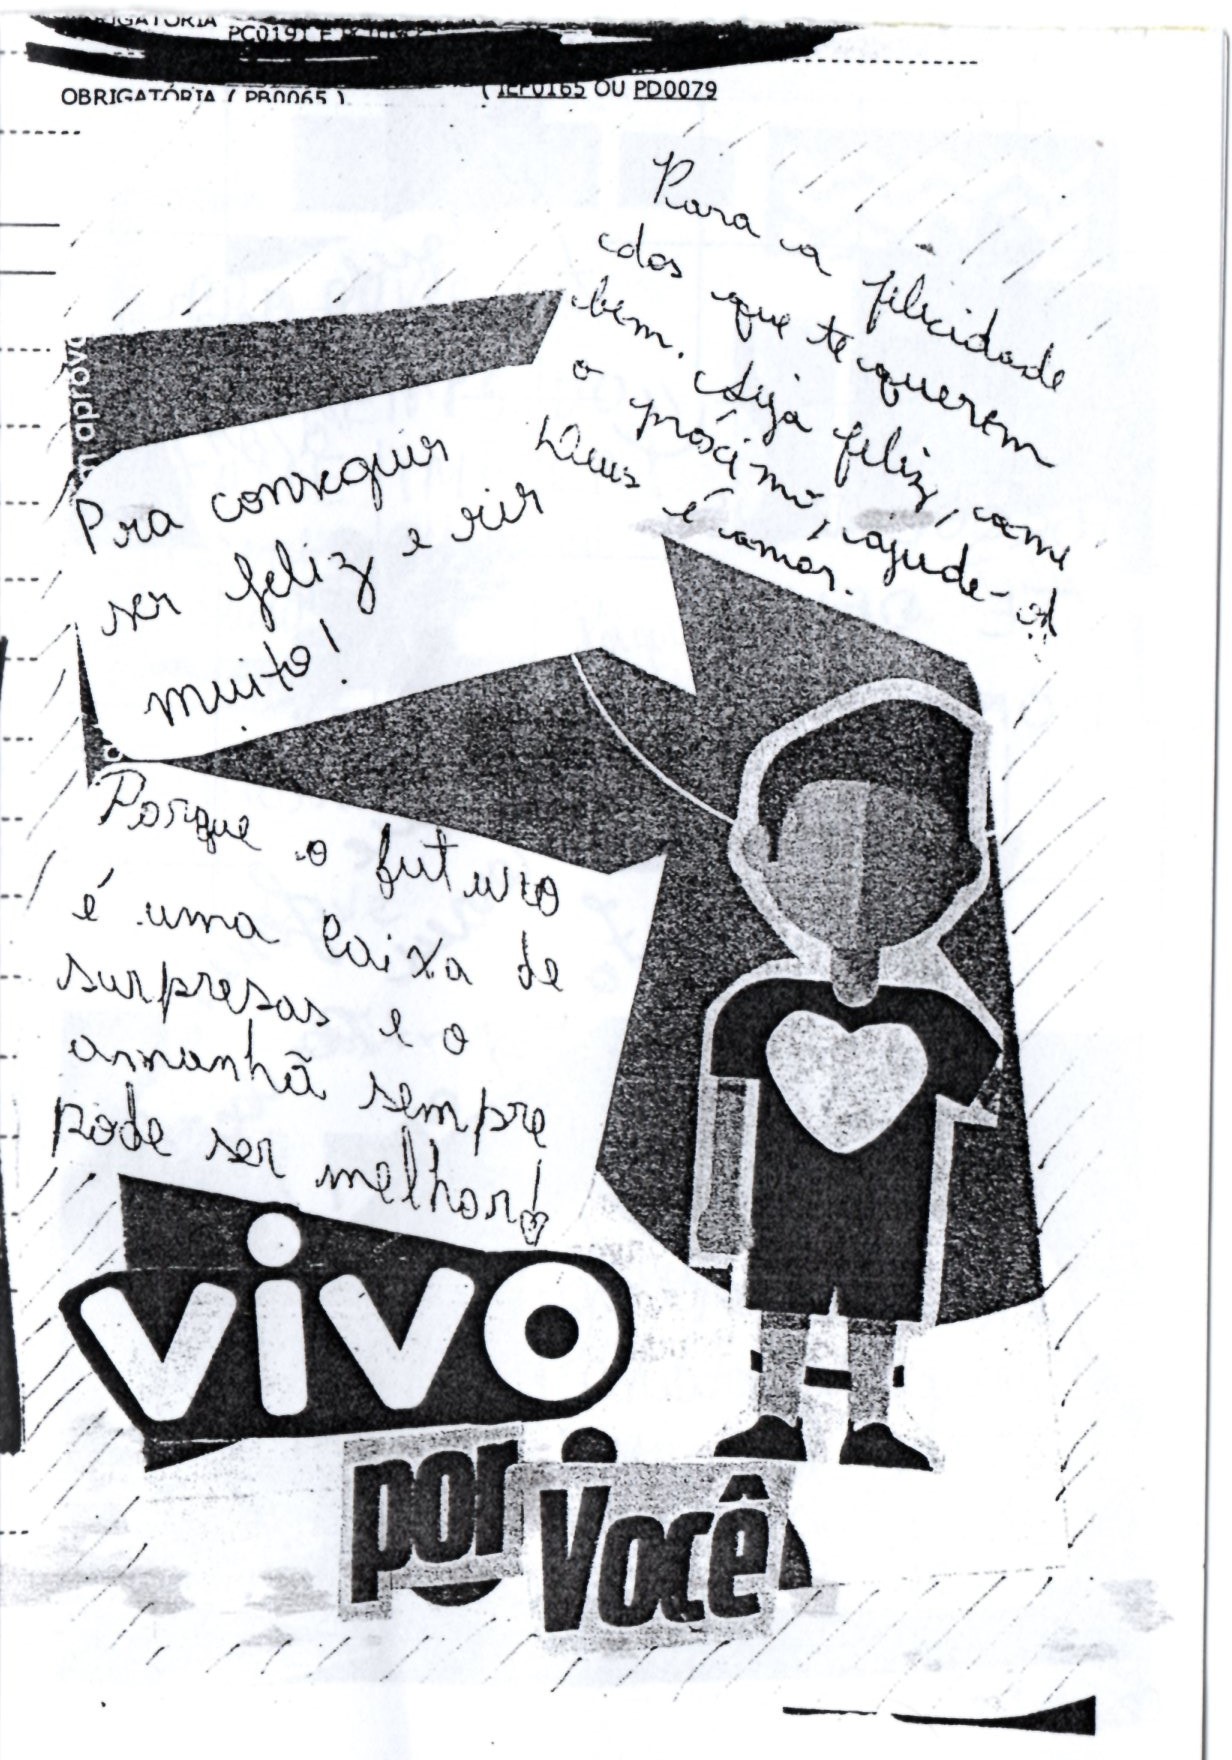 PC0191 E
OBRIGATÓRIA ( PB0065 )
OU PD0079
Para a felicidade
dos que te querem
bem. Seja feliz, ame
o próximo, ajude-o!
Deus é amor.
m aprova
Pra conseguir
ser feliz e rir
muito!
Porque o futuro
é uma caixa de
surpresas e o
amanhã sempre
pode ser melhor!
vivo
por
Você